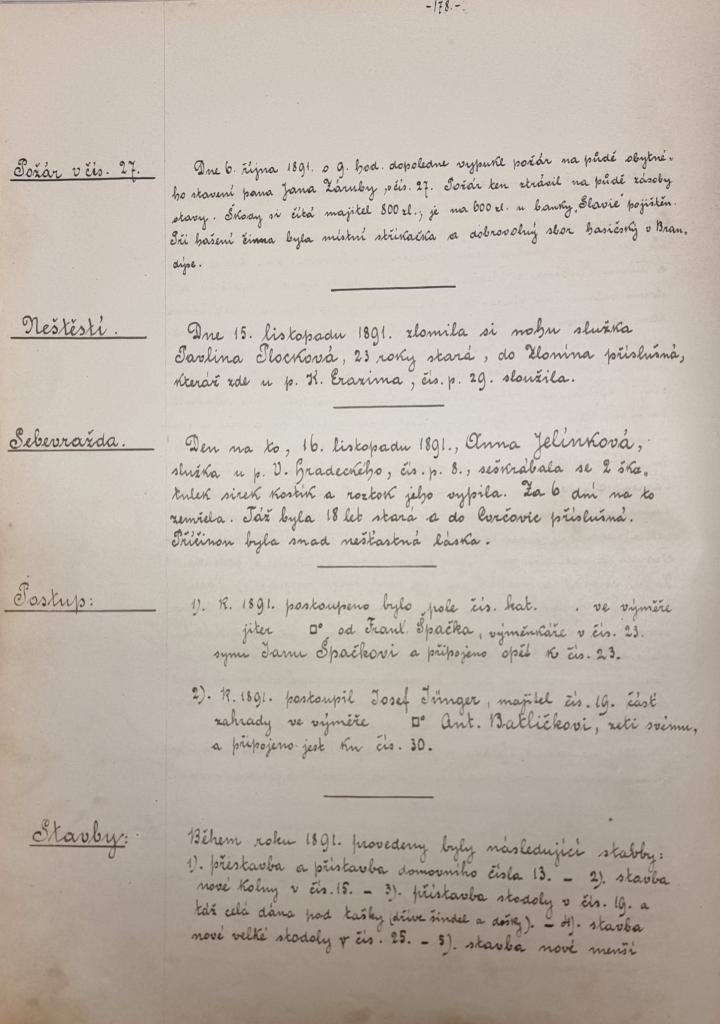 -178.-
Požár v čís. 27.
Dne 6. října 1891 o 9. hod. dopoledne vypukl požár na půdě obytné-
ho stavení pana Jana Záruby, v čís. 27. Požár ten ztrávil na půdě zásoby
stavy. Škody si čítá majitel 800 zl., je na 600 zl. u banky „Slavie" pojištěn.
Při hašení činna byla místní stříkačka a dobrovolný sbor hasičský v Bran-
dýse.
Neštěstí.
Dne 15. listopadu 1891. zlomila si nohu služka
Pavlina Plocková, 23 roky stará, do Zlonína příslušná,
kteráž zde u p. K. Erazima, čís. p. 29. sloužila.
Sebevražda.
Den na to, 16. listopadu 1891., Anna Jelínková,
služka u p. V. Hradeckého, čís. p. 8., seškrábala se 2 ška-
tulek sirek kostík a roztok jeho vypila. Za 6 dní na to
zemřela. Táž byla 18 let stará a do Čorčovic příslušná.
Příčinou byla snad nešťastná láska.
Postup:
1). R. 1891. postoupeno bylo pole čís. kat. . ve výměře
jiter □° od Frant. Špačka, výměnkáře v čís. 23.
synu Janu Špačkovi a připojeno opět k čís. 23.
2). R. 1891. postoupil Josef Jünger, majitel čís. 19. část
zahrady ve výměře □° Ant. Batličkovi, zeti svému,
a připojeno jest ku čís. 30.
Stavby:
Během roku 1891. provedeny byly následující stabby:
1). přestavba a přístavba domovního čísla 13. - 2). stavba
nové kolny v čís. 15. - 3). přístavba stodoly v čís. 19. a
táž celá dána pod tašky (dříve šindel a došky). - 4). stavba
nové velké stodoly v čís. 25. - 5). stavba nové menší